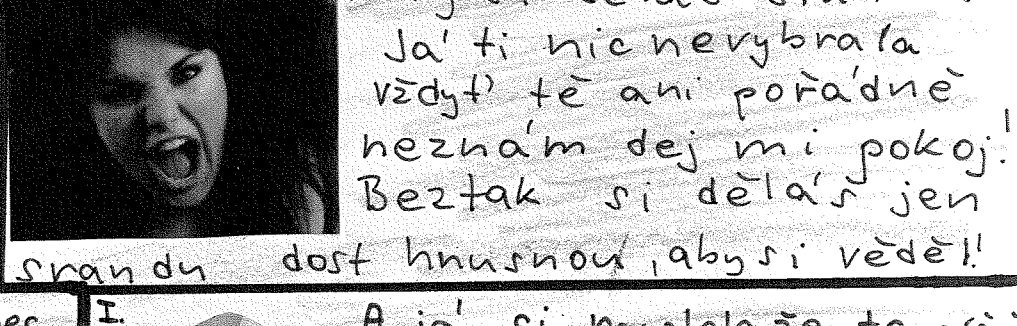 Já ti nic nevybrala
vždyť tě ani pořádně
neznám dej mi pokoj!
Beztak si děláš jen
srandu dost hnusnou, aby si věděl!
I.
A já si